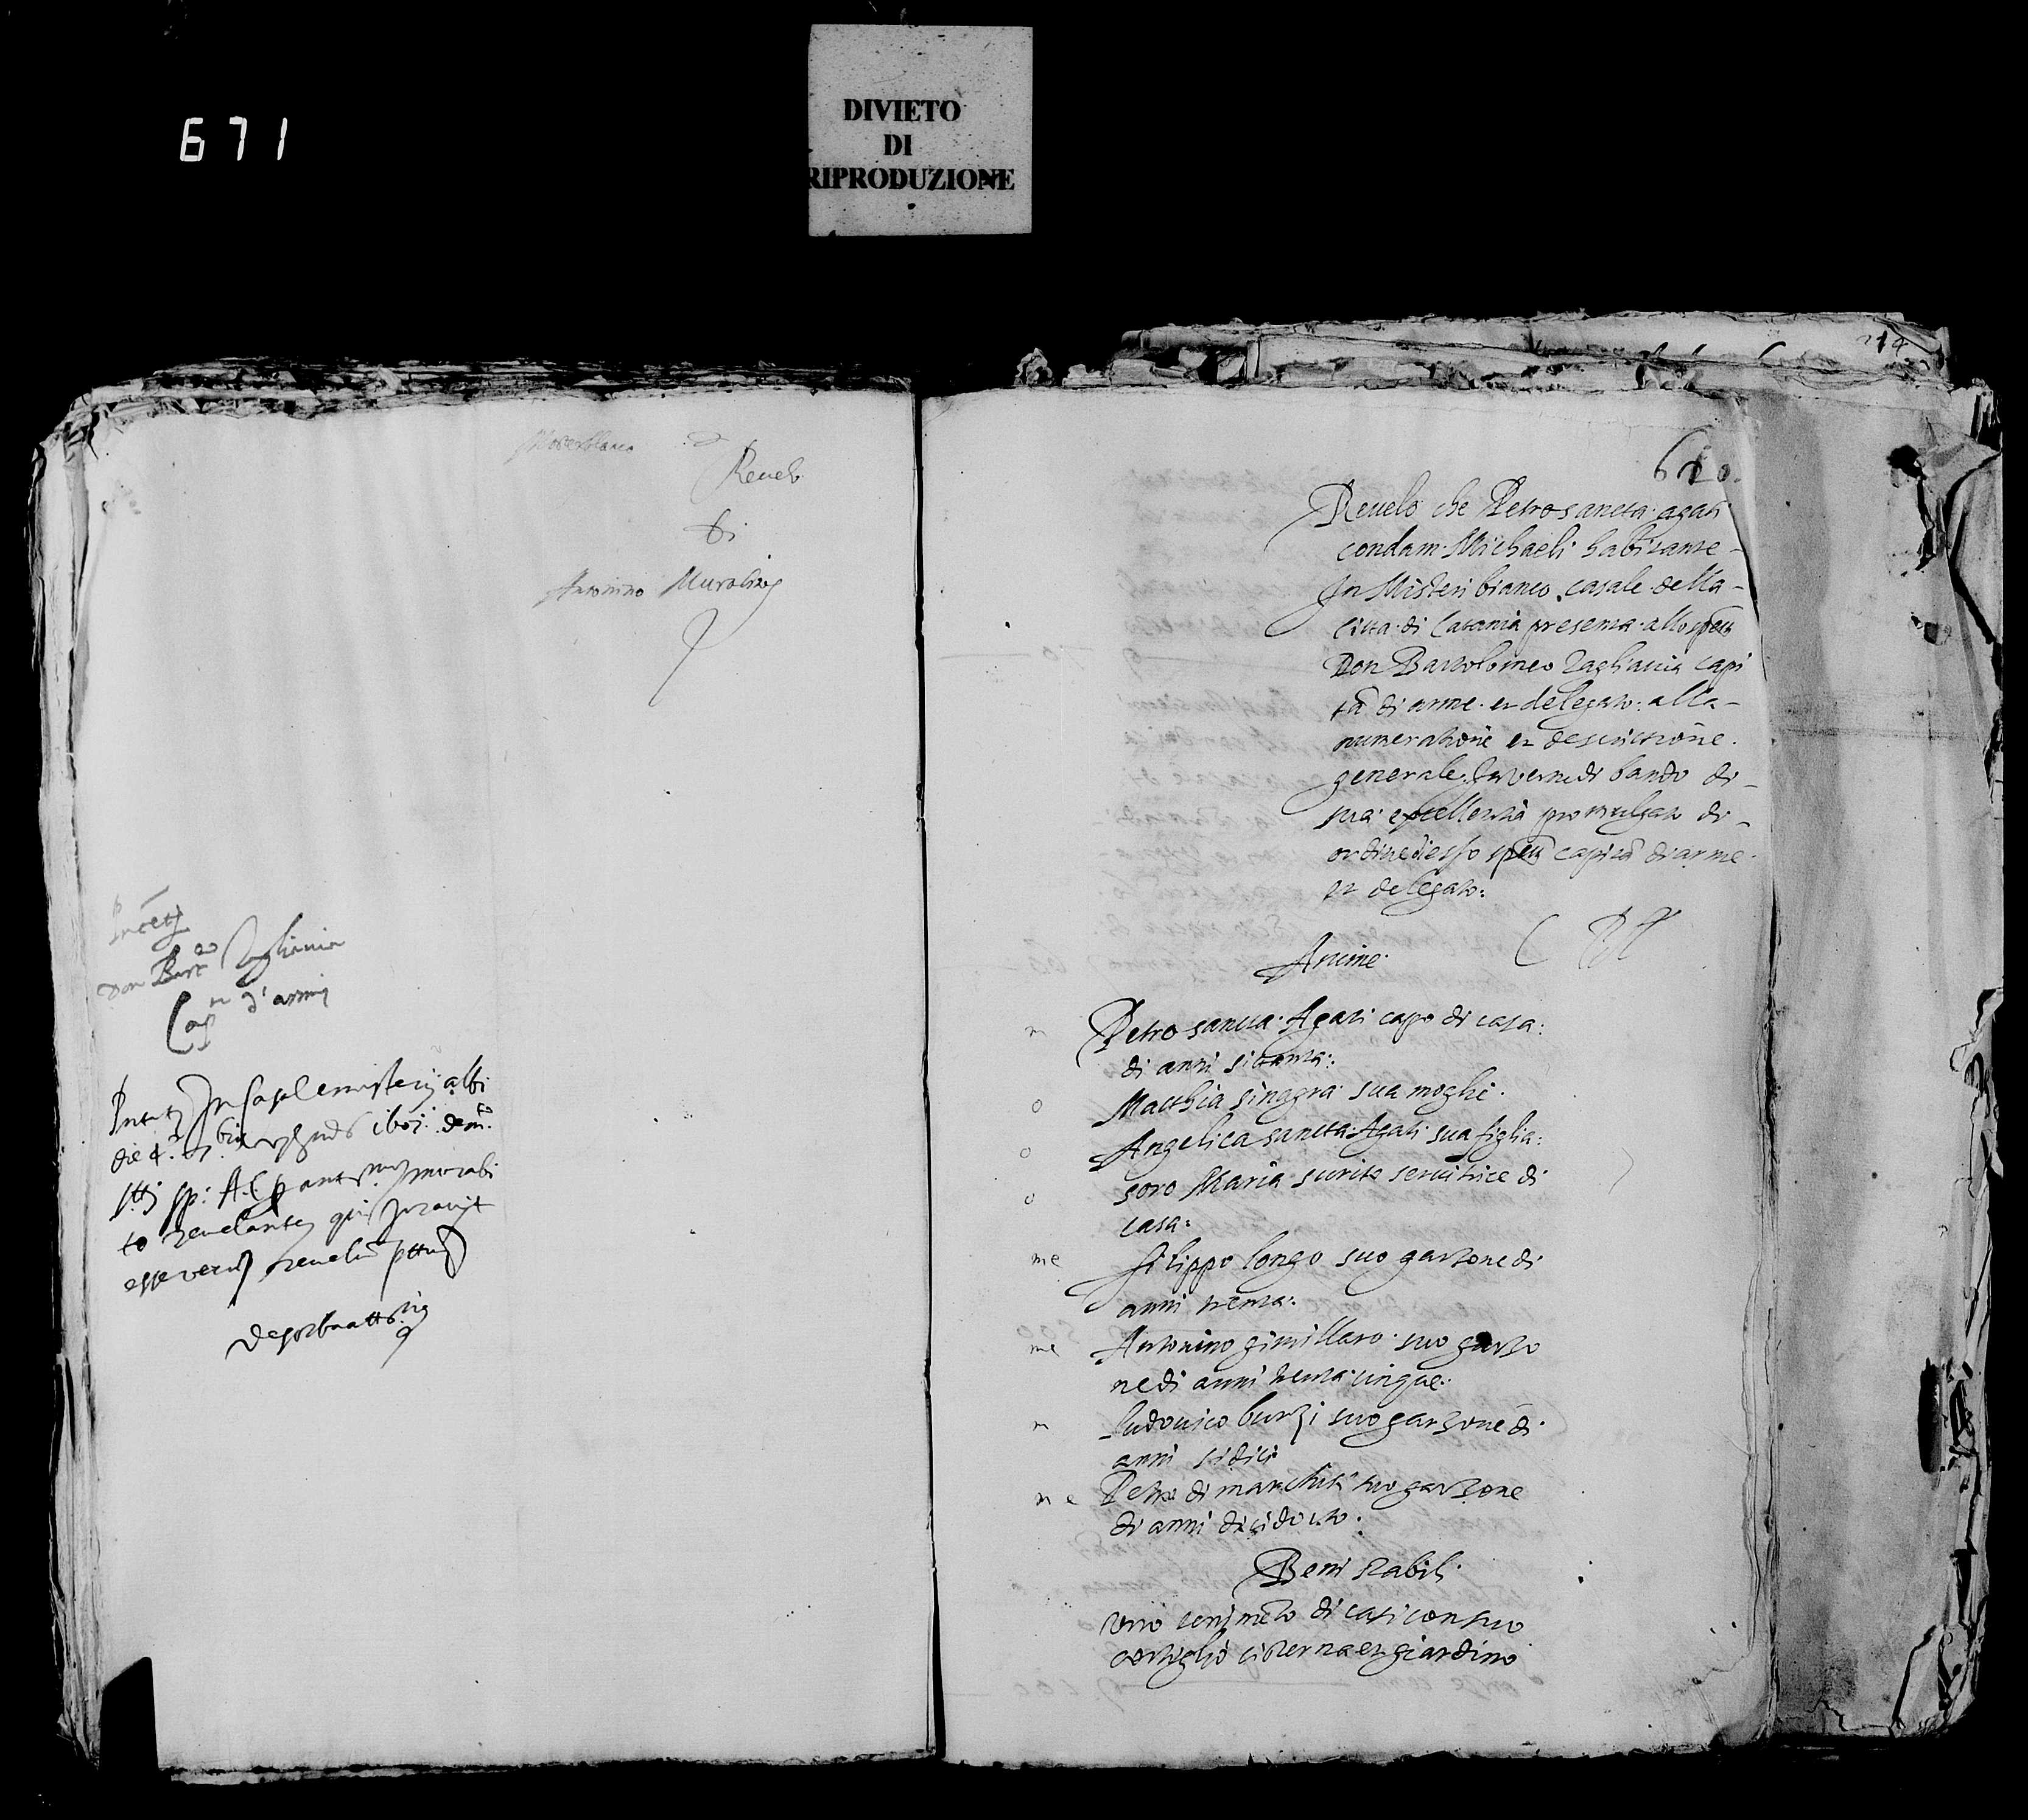 671
DIVIETO
DI
RIPRODUZIONE
214
Revelo
di
Antonino Murabito
Don Bar.eo Tagliavia
Cap.n d'armi
In Casale misterij albi
to revelante qui juravit
esse verum revelum
610.
Revelo che Petro sancta agati
condam Michaeli habitante
In Misteri bianco casale della
Citta di Catania presenta allo spett.
Don Bartolomeo Tagliavia capi
tā di arme et delegato alla
numeratione et descrittione
generale in vermi di bando di
sua excellentia promulgato di
ordine di esso spett. capitā di arme
et delegato:
Anime
Petro sancta Agati capo di casa:
di anni sittanta:
Matthia sinagra sua moglie.
Angelica sancta Agati sua figlia:
soro Maria surita servitrice di
casa:
me Filippo longo suo garzone di
anni trenta:
me Antonino gimillaro suo garzo
ne di anni trenta cinque.
Ludovico burzi suo garzone di
anni sidici
Petro di marchisi suo garzone
di anni dicidocto.
Beni stabili
uno tenimēto di casi con suo
cortiglio cisterna et giardino